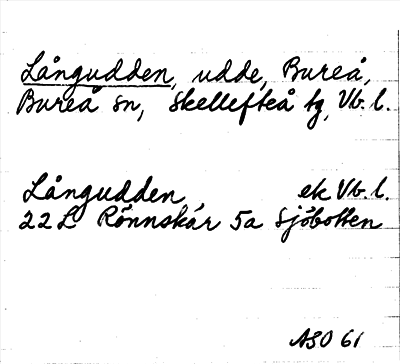 Långudden, udde, Bureå,
Bureå sn, Skellefteå tg, Vb. l.
Långudden ek Vb. l.
22 L Rönnskär 5a Sjöbotten
ASO 61